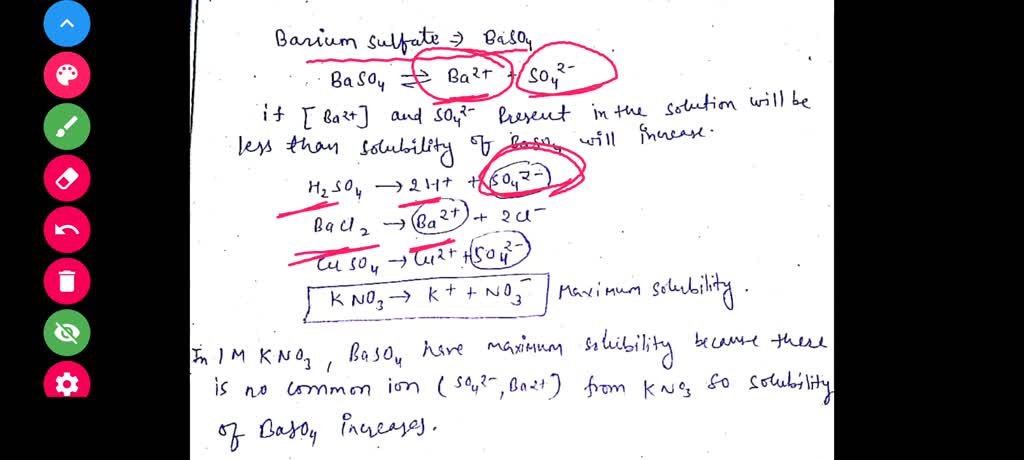 Barium sulfate ⇒ BaSO4
BaSO4 ⇌ Ba2+ + SO4 2-
if [Ba2+] and SO4 2- Present in the solution will be
less than solubility of BaSO4 will increase.
H2SO4 → 2H+ + SO4 2-
BaCl2 → Ba2+ + 2Cl-
CuSO4 → Cu2+ + SO4 2-
KNO3 → K+ + NO3- Maximum solubility.
In 1M KNO3, BaSO4 have maximum solubility because there
is no common ion (SO4 2-, Ba2+) from KNO3 so solubility
of BaSO4 increases.